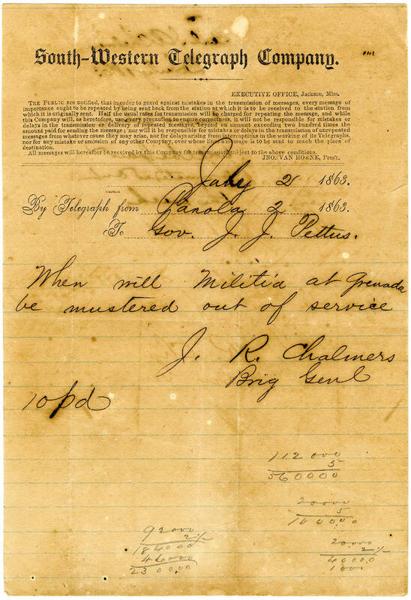 South-Western Telegraph Company.
EXECUTIVE OFFICE, Jackson, Miss.
THE PUBLIC are notified, that in order to guard against mistakes in the transmission of messages, every message of
importance ought to be repeated by being sent back from the station at which it is to be received to the station from
which it is originally sent. Half the usual rates for transmission will be charged for repeating the message, and while
this Company will as heretofore, use every precaution to ensure correctness, it will not be responsible for mistakes or
delays in the transmission or delivery of repeated messages, beyond an amount exceeding two hundred times the
amount paid for sending the message; nor will it be responsible for mistakes or delays in the transmission of unrepeated
messages from whatever cause they may arise, nor for delays arising from interruptions in the working of its Telegraphs,
nor for any mistake or omission of any other Company, over whose lines a message is to be sent to reach the place of
destination.
All messages will hereafter be received by this Company for transmission, subject to the above conditions.
JNO. VAN HORNE, Pres't.
July 2 1863.
By Telegraph from Panola 2 1863.
To Gov. J. J. Pettus.
When will Militia at Grenada
be mustered out of service
J. R. Chalmers
Brig Genl
10 pd
112 000
5
560000
20000
5
100000
92000
2½
184000
46000
230000
20000
2½
40000